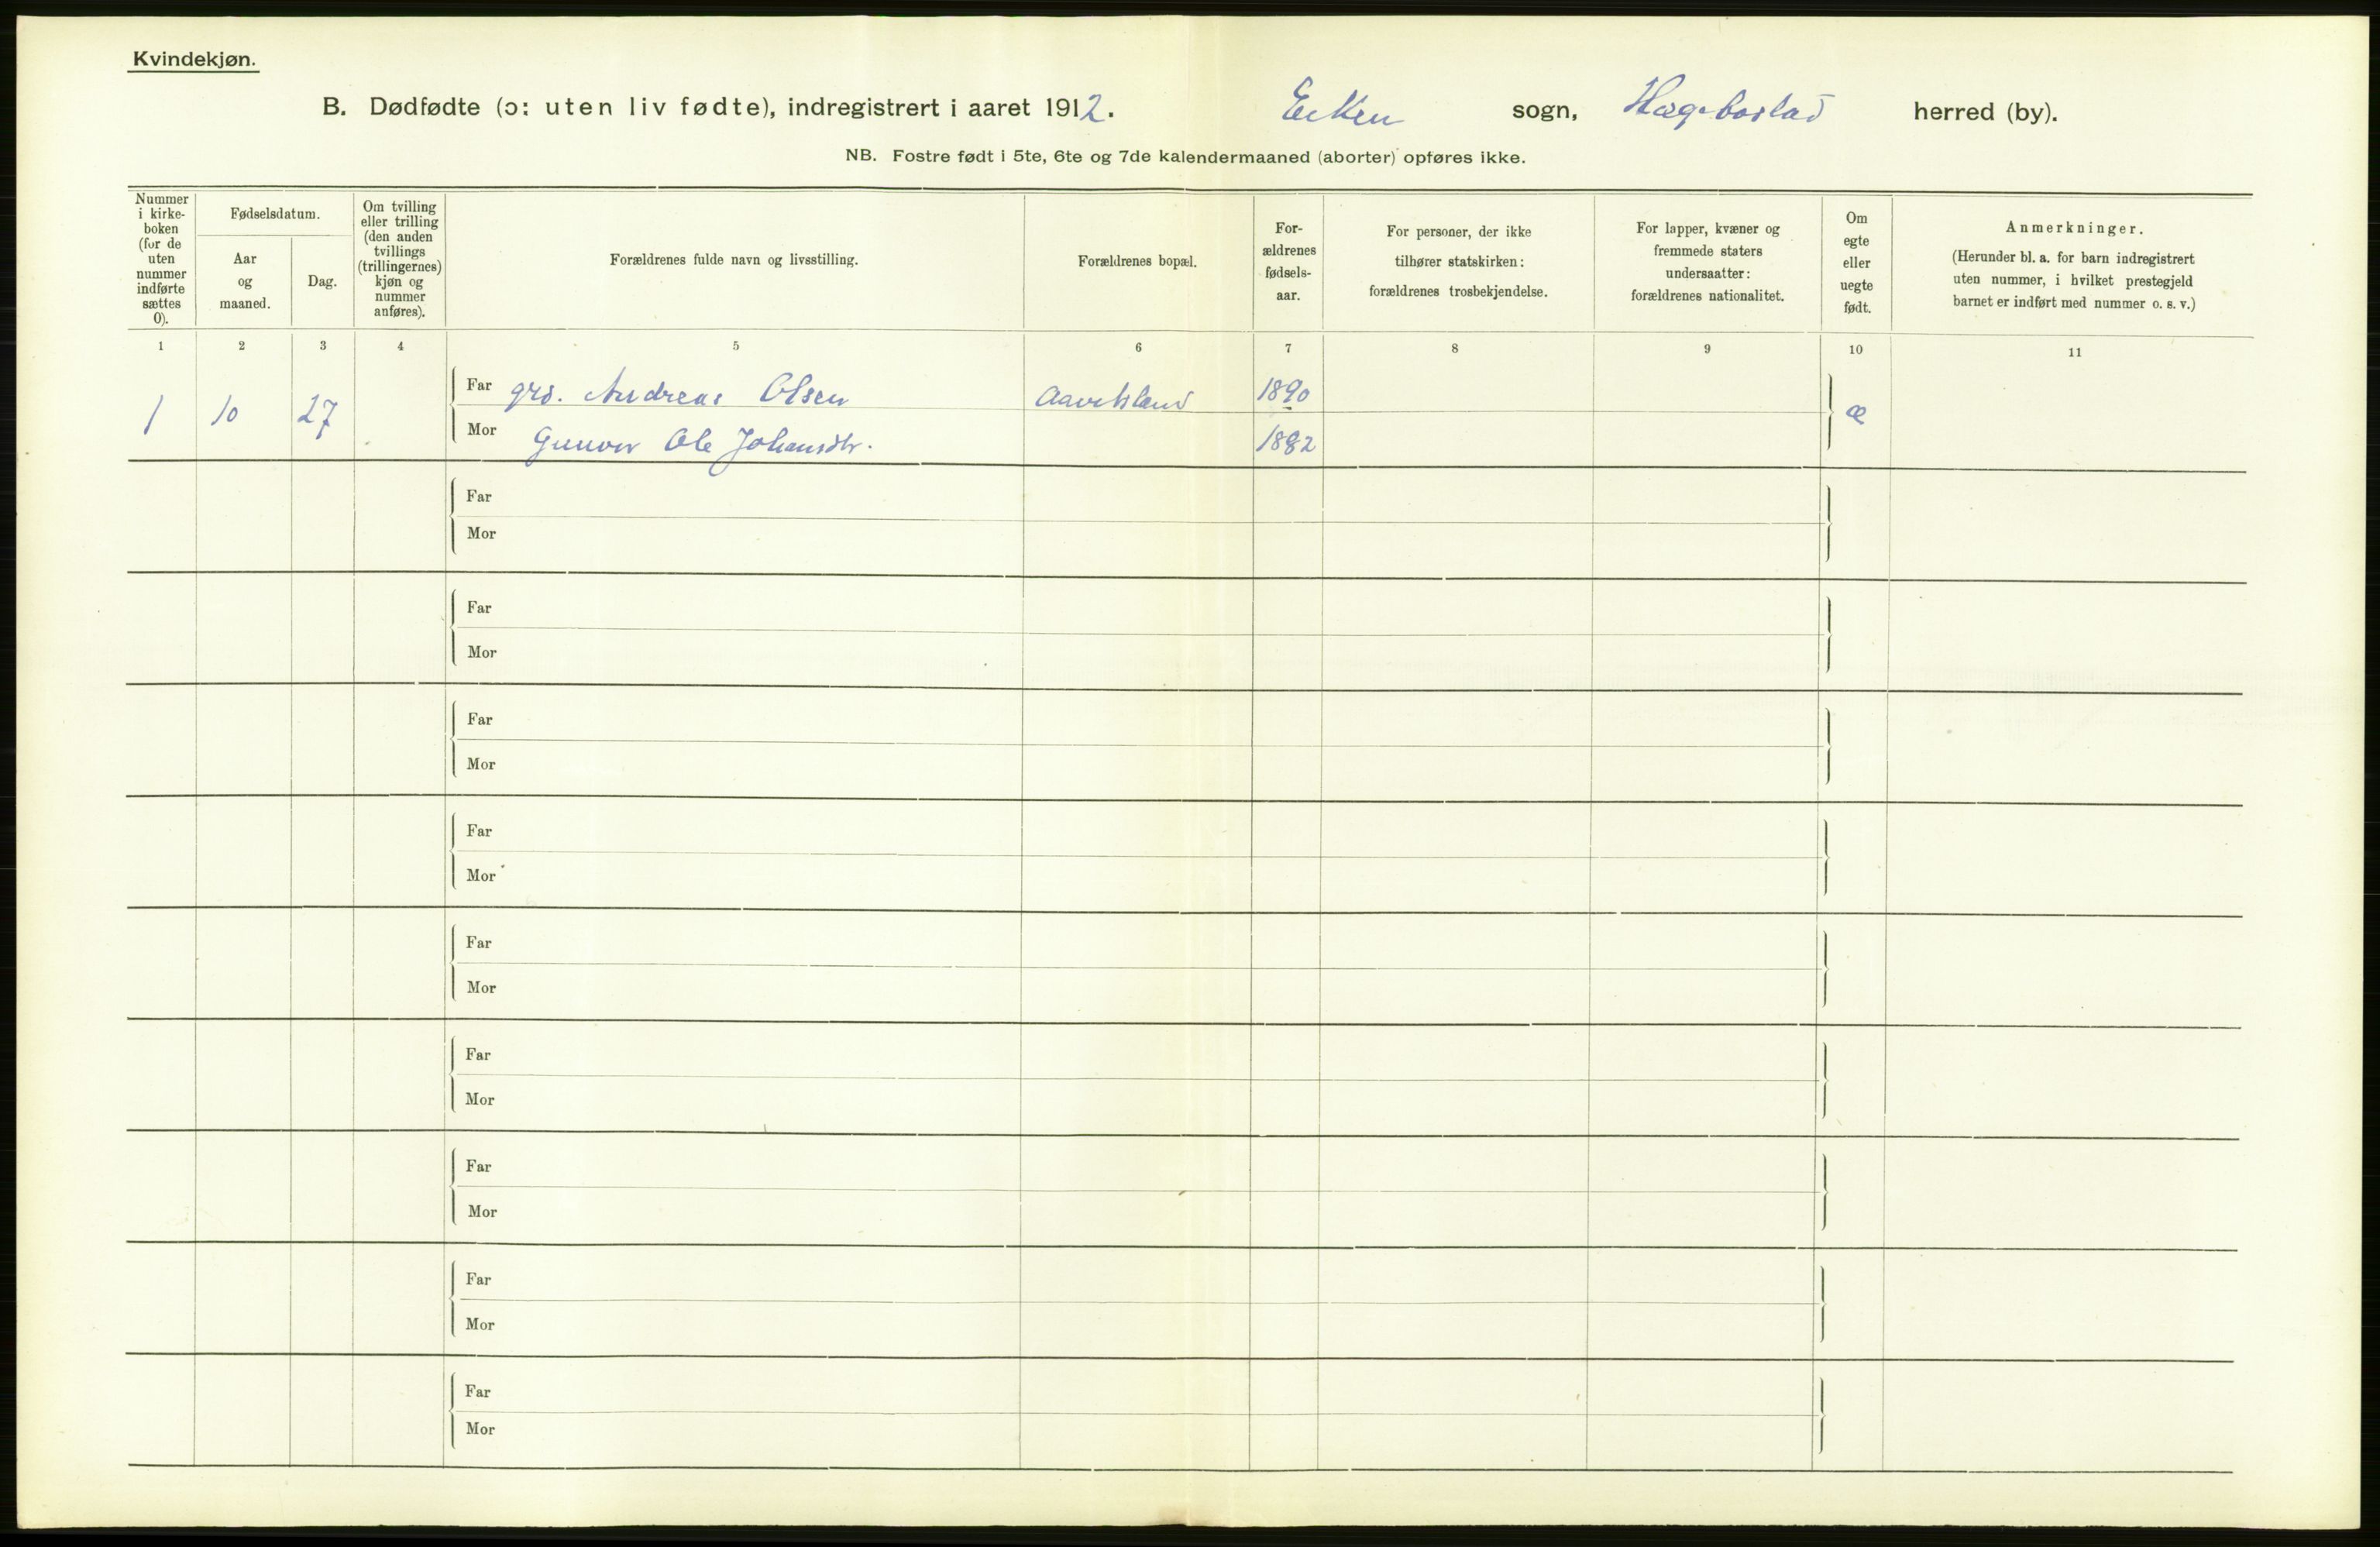 Kvindekjøn.
B. Dødfødte (ɔ: uten liv fødte), indregistrert i aaret 1912. Eiken sogn, Hægebostad herred (by).
NB. Fostre født i 5te, 6te og 7de kalendermaaned (aborter) opføres ikke.
Nummer i kirke-boken (for de uten nummer indførte sættes 0).
Fødselsdatum.
Aar og maaned.
Dag.
Om tvilling eller trilling (den anden tvillings (trillingernes) kjøn og nummer anføres).
Forældrenes fulde navn og livsstilling.
Forældrenes bopæl.
For-ældrenes fødsels-aar.
For personer, der ikke tilhører statskirken: forældrenes trosbekjendelse.
For lapper, kvæner og fremmede staters undersaatter: forældrenes nationalitet.
Om egte eller uegte født.
Anmerkninger.
(Herunder bl. a. for barn indregistrert uten nummer, i hvilket prestegjeld barnet er indført med nummer o. s. v.)
1 2 3 4 5 6 7 8 9 10 11
1 10 27 Far grd. Andreas Olsen 1890 æ
Mor Gunvor Ole Johansdtr. 1882
Far
Mor
Far
Mor
Far
Mor
Far
Mor
Far
Mor
Far
Mor
Far
Mor
Far
Mor
Far
Mor